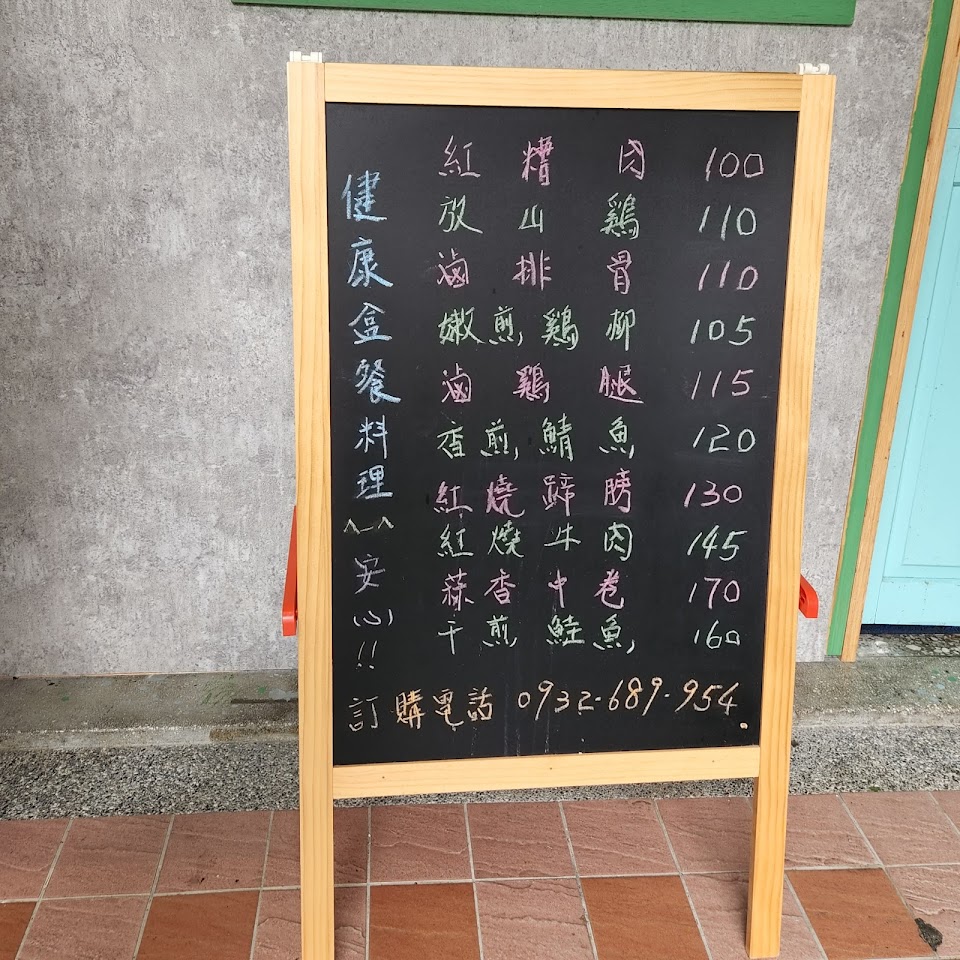 健康盒餐料理^_^安心!!
紅糟肉 100
放山鷄 110
滷排骨 110
嫩煎鷄柳 105
滷鷄腿 115
香煎鯖魚 120
紅燒蹄膀 130
紅燒牛肉 145
蒜香中卷 170
干煎鮭魚 160
訂購電話 0932-689-954